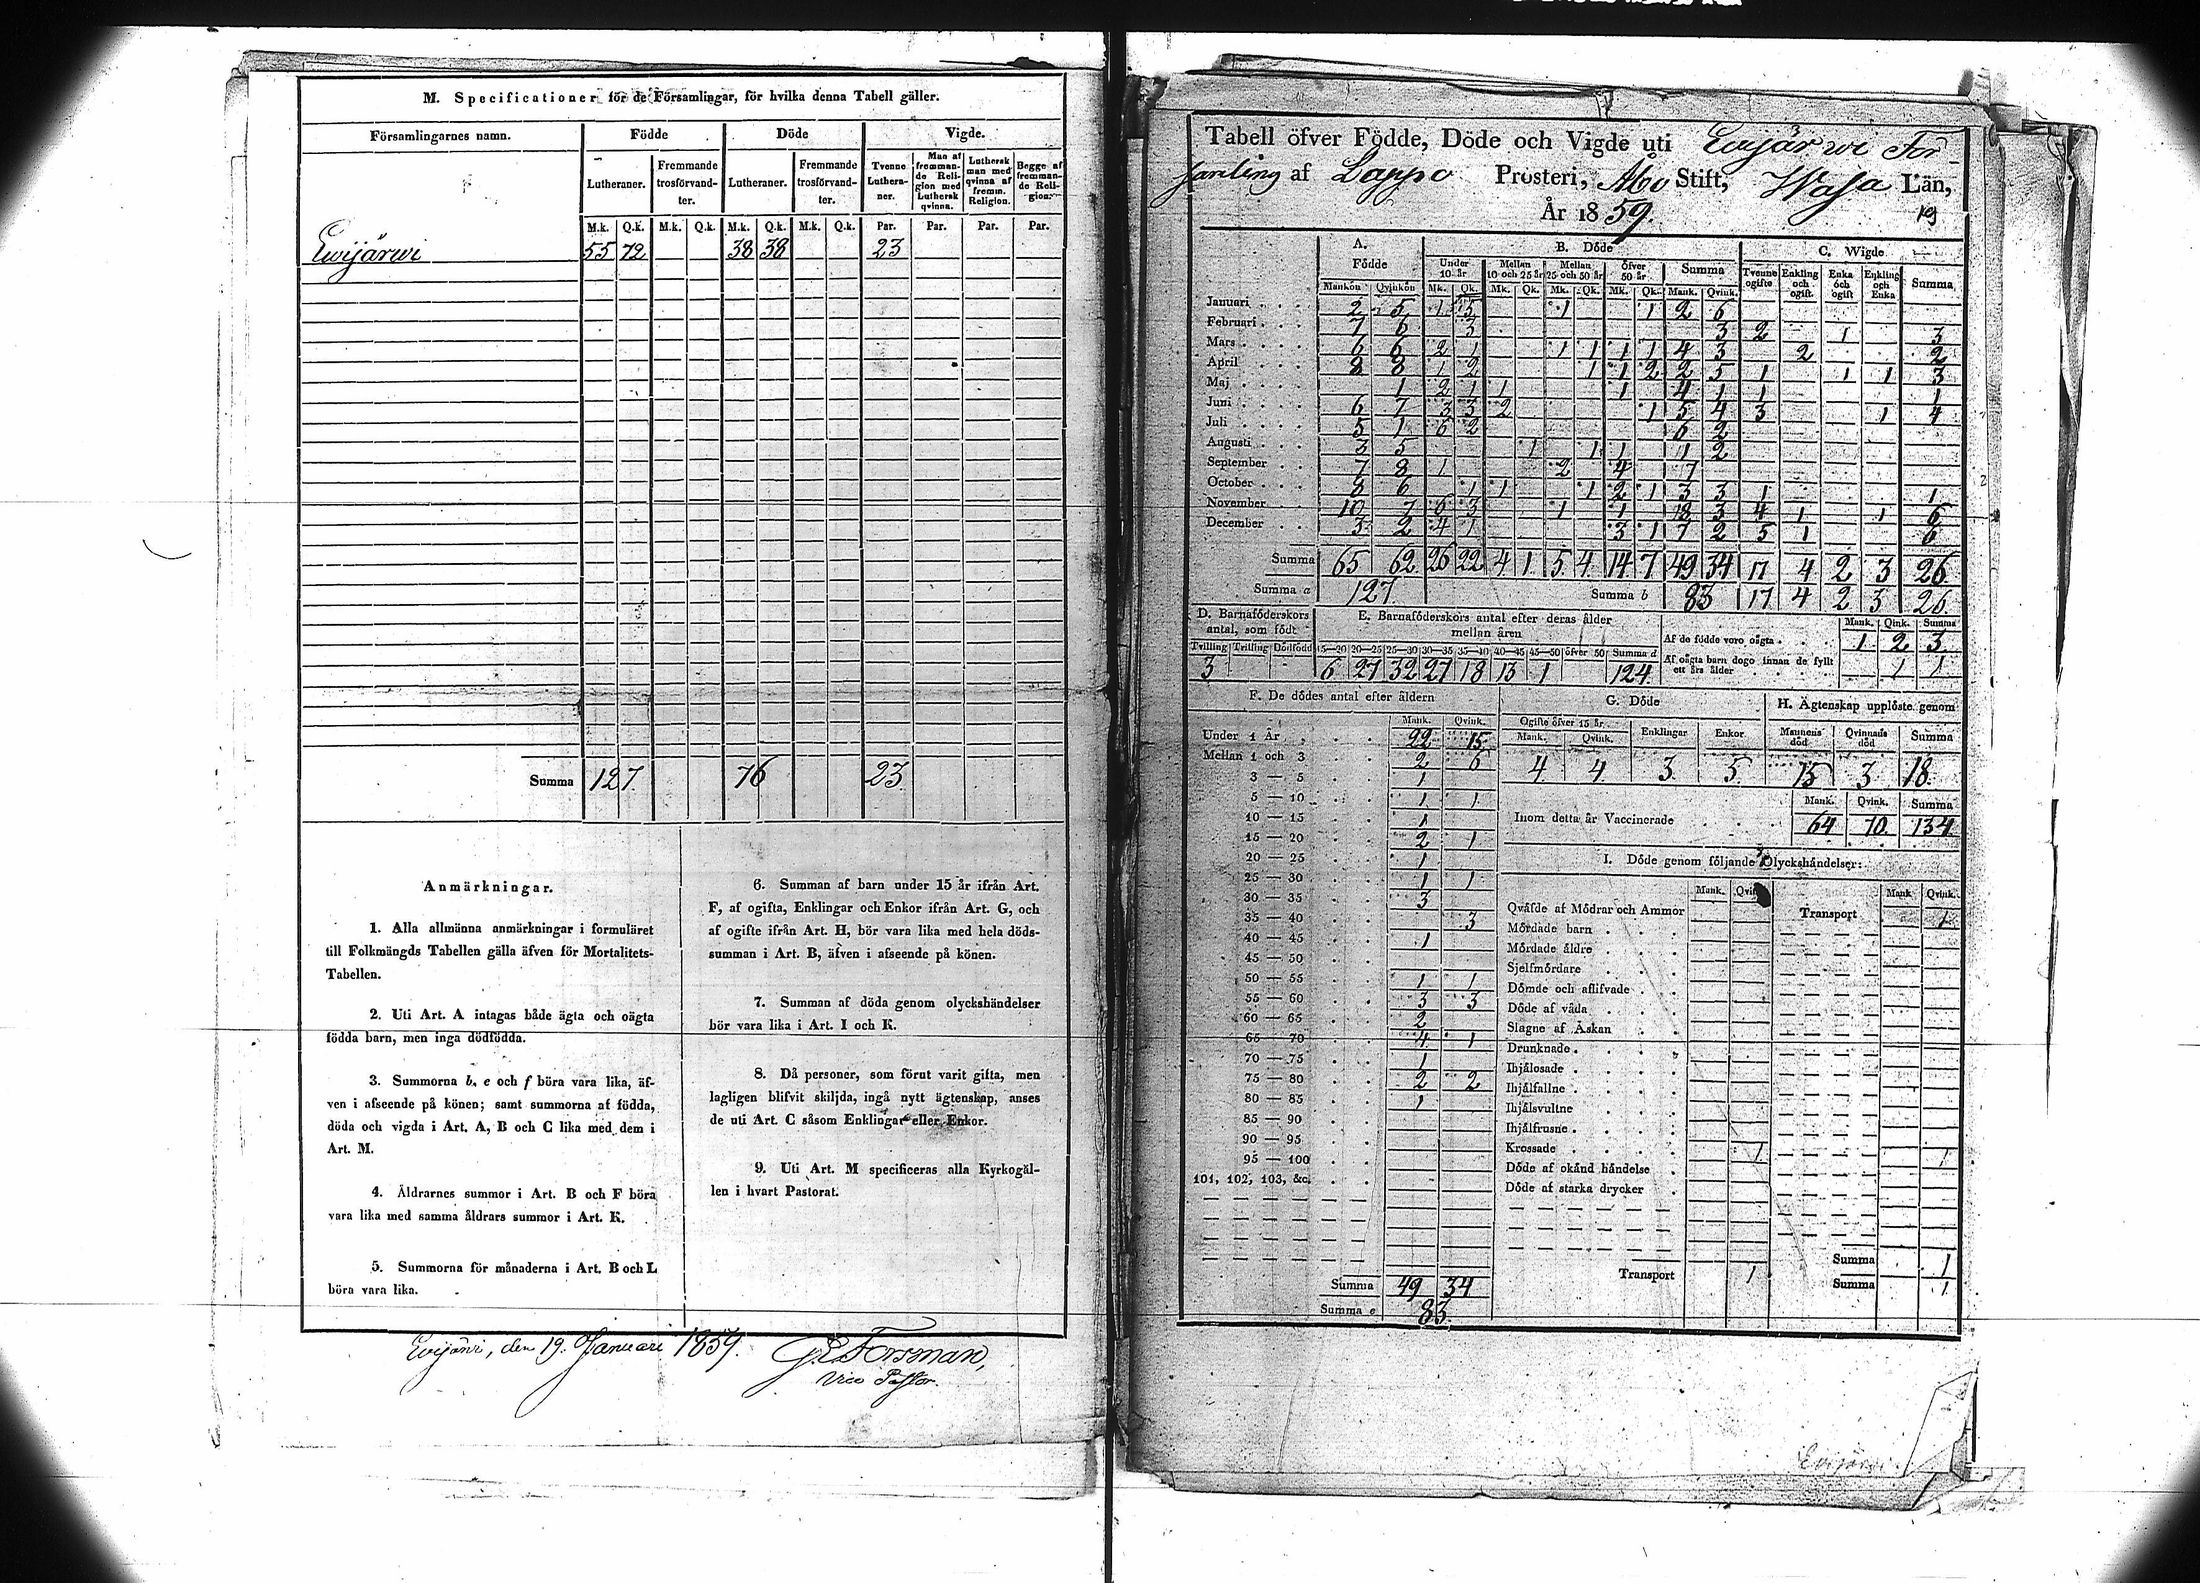 M. Specificationer för de Församlingar, för hvilka denna Tabell gäller.
Församlingarnes namn. Födde Döde Vigde.
Lutheraner. Fremmande trosförvandter. Lutheraner. Fremmande trosförvandter. Tvenne Lutheraner. Man af fremmande Religion med Luthersk qvinna. Luthersk man med qvinna af fremm. Religion. Begge af fremmande Religion.
M.k. Q.k. M.k. Q.k. M.k. Q.k. M.k. Q.k. Par. Par. Par. Par.
Ewijärwi 55 72 38 38 23
Summa 127 76 23
Anmärkningar.
1. Alla allmänna anmärkningar i formuläret
till Folkmängds Tabellen gälla äfven för Mortalitets-
Tabellen.
2. Uti Art. A intagas både ägta och oägta
födda barn, men inga dödfödda.
3. Summorna b, e och f böra vara lika, äf-
ven i afseende på könen; samt summorna af födda,
döda och vigda i Art. A, B och C lika med dem i
Art. M.
4. Åldrarnes summor i Art. B och F böra
vara lika med samma åldrars summor i Art. K.
5. Summorna för månaderna i Art. B och L
böra vara lika.
6. Summan af barn under 15 år ifrån Art.
F, af ogifta, Enklingar och Enkor ifrån Art. G, och
af ogifte ifrån Art. H, bör vara lika med hela döds-
summan i Art. B, äfven i afseende på könen.
7. Summan af döda genom olyckshändelser
bör vara lika i Art. I och K.
8. Då personer, som förut varit gifta, men
lagligen blifvit skiljda, ingå nytt ägtenskap, anses
de uti Art. C såsom Enklingar eller Enkor.
9. Uti Art. M specificeras alla Kyrkogäl-
len i hvart Pastorat.
Ewijärvi, den 19. Januari 1859. G.E. Forsman,
Vice Pastor.
Tabell öfver Födde, Döde och Vigde uti Ewijärwi För-
samling af Lappo Prosteri, Åbo Stift, Wasa Län,
År 1859.
A. Födde B. Döde C. Wigde
Under 10 år Mellan 10 och 25 år Mellan 25 och 50 år öfver 50 år Summa Tvenne ogifte Enkling och ogift. Enka och ogift Enkling och Enka Summa
Mankön Qvinkön Mk. Qk. Mk. Qk. Mk. Qk. Mk. Qk. Mank. Qvink.
Januari 2 5 1 5 1 1 2 6
Februari 7 6 3 3 2 1 3
Mars 6 6 2 1 1 1 1 1 4 3 2 2
April 8 8 1 2 1 1 2 2 5 1 1 1 3
Maj 1 2 1 1 1 4 1 1 1
Juni 6 7 3 3 2 1 5 4 3 1 4
Juli 5 1 6 2 6 2
Augusti 3 5 1 1 1 1 2
September 7 8 1 2 4 7
October 8 6 1 1 1 2 1 3 3 1 1
November 10 7 6 3 1 1 8 3 4 1 1 6
December 3 2 4 1 3 1 7 2 5 1 6
Summa 65 62 26 22 4 1 5 4 14 7 49 34 17 4 2 3 26
Summa a 127 Summa b 83 17 4 2 3 26
D. Barnaföderskors antal, som födt E. Barnaföderskors antal efter deras ålder mellan åren Mank. Qink. Summa
Tvilling Trilling Dödfödd 15—20 20—25 25—30 30—35 35—40 40—45 45—50 öfver 50 Summa d
3 6 27 32 27 18 13 1 124
Af de födde voro oägta 1 2 3
Af oägta barn dogo innan de fyllt ett års ålder 1 1
F. De dödes antal efter åldern
Mank. Qvink.
Under 1 År 22 15
Mellan 1 och 3 2 6
3 — 5 1
5 — 10 1 1
10 — 15 1
15 — 20 2 1
20 — 25 1
25 — 30 1 1
30 — 35 3
35 — 40 3
40 — 45 1
45 — 50
50 — 55 1 1
55 — 60 3 3
60 — 65 2
65 — 70 4 1
70 — 75 1
75 — 80 2 2
80 — 85 1
85 — 90
90 — 95
95 — 100
101, 102, 103, &c.
Summa 49 34
Summa e 83.
G. Döde H. Ägtenskap upplöste genom
Ogifte öfver 15 år. Enklingar Enkor Mannens död Qvinnans död Summa
Mank. Qvink.
4 4 3 5 15 3 18
Mank. Qvink. Summa
Inom detta år Vaccinerade 64 70 134
I. Döde genom följande Olyckshändelser:
Mank. Qvink. Mank Qvink.
Qväfde af Mödrar och Ammor Transport 1
Mördade barn
Mördade äldre
Sjelfmördare
Dömde och aflifvade
Döde af våda
Slagne af Åskan
Drunknade
Ihjälosade
Ihjälfallne
Ihjälsvultne
Ihjälfrusne
Krossade 1 1
Döde af okänd händelse
Döde af starka drycker
Transport 1
Summa 1
Summa 1
Evijärvi